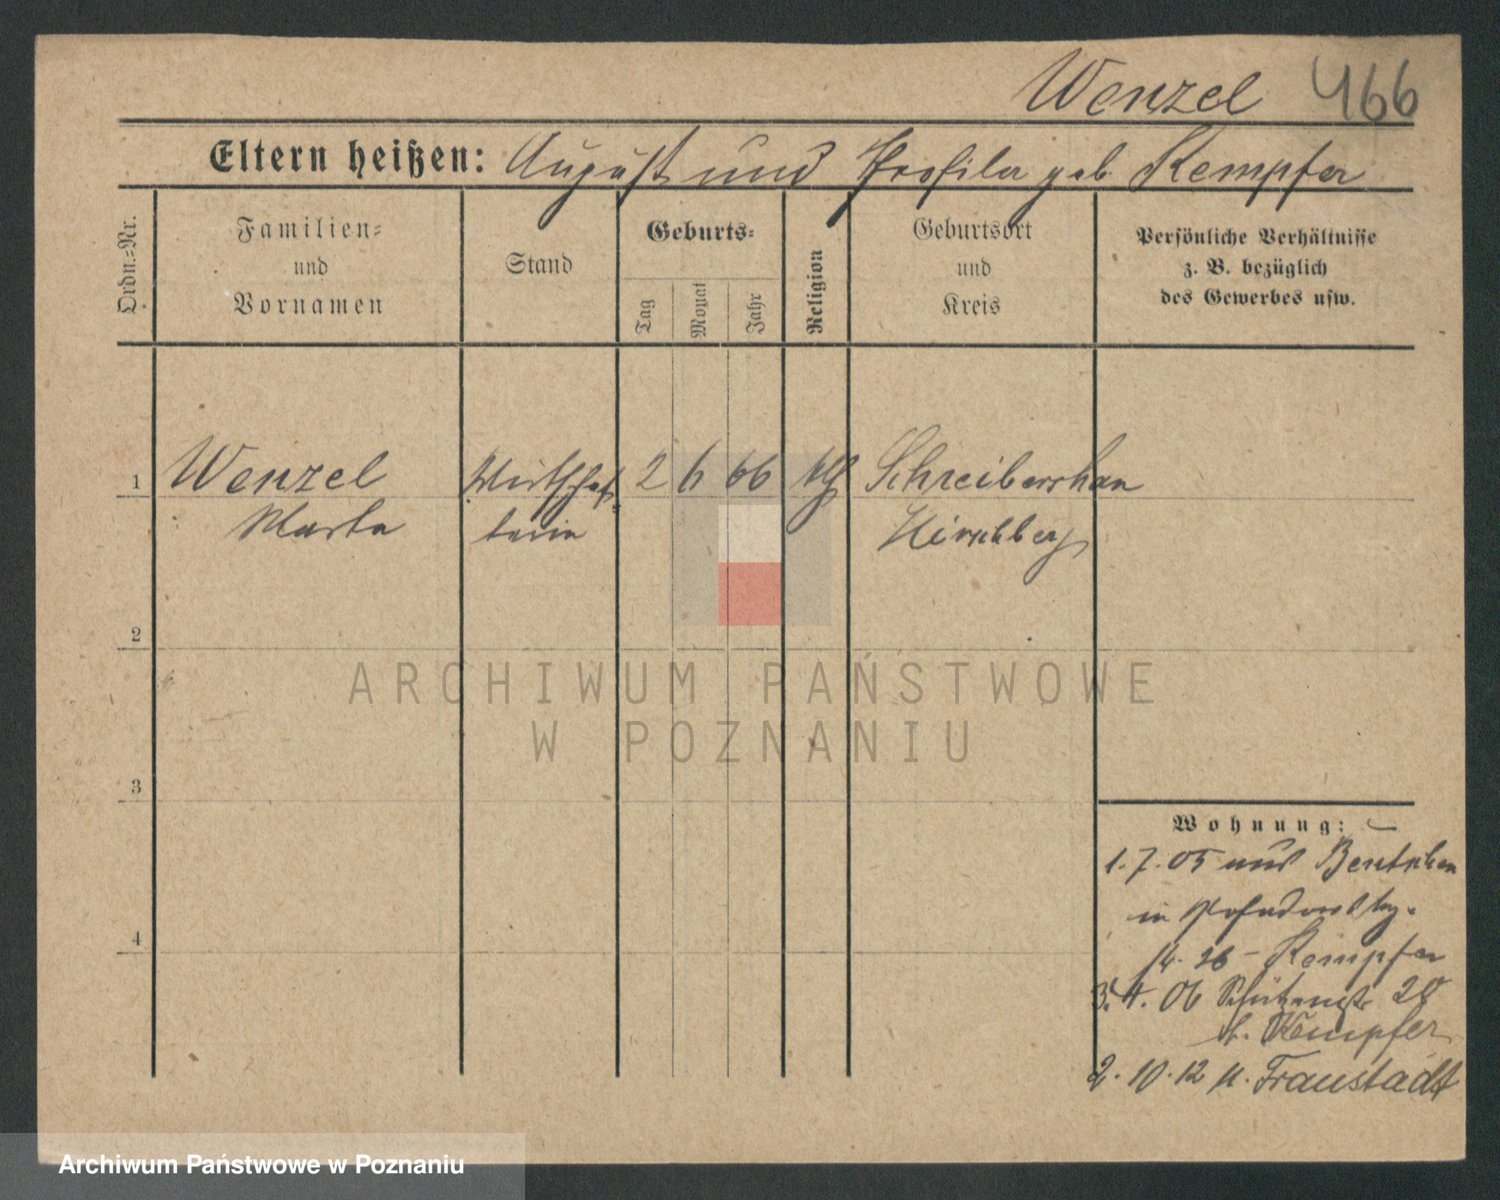 Wenzel 466
Eltern heißen: August und geb Kempfer
Ordn.=Nr.
Familien=
und
Vornamen
Stand
Geburts=
Tag
Monat
Jahr
Religion
Geburtsort
und
Kreis
Persönliche Verhältnisse
z. B. bezüglich
des Gewerbes usw.
1 Wenzel Wirtschaf= 2 6 66 Schreiberhau
Marta terin Hirschberg
2
3
4
Wohnung:
1.7.05 aus Bentschen
in
26 - Kempfer
3.4.06 Schützenstr. 28
b. Kempfer
2.10.12 n. Fraustadt
ARCHIWUM PAŃSTWOWE
W POZNANIU
Archiwum Państwowe w Poznaniu